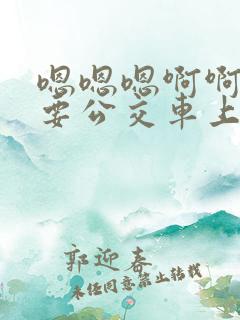 嗯嗯嗯啊啊
要公交車上
郭迎春
未经同意禁止转载